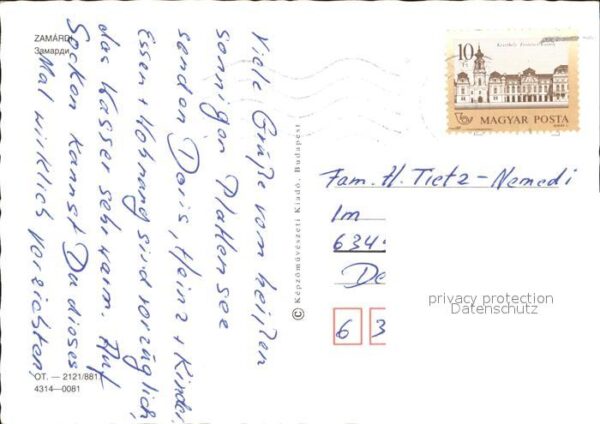 ZAMÁRDI
Замарди
Viele Grüße vom heißen
sonnigen Plattensee
senden Doris, Heinz + Kinder.
Essen + Wohnung sind vorzüglich,
das Wasser sehr warm. Auf
Socken kannst Du dieses
Mal wirklich verzichten,
OT. — 2121/881
4314—0081
© Képzőművészeti Kiadó, Budapest
10 Ft
MAGYAR POSTA
Fam. H. Tietz-Nemedi
Im
634
De
privacy protection
Datenschutz
6 3